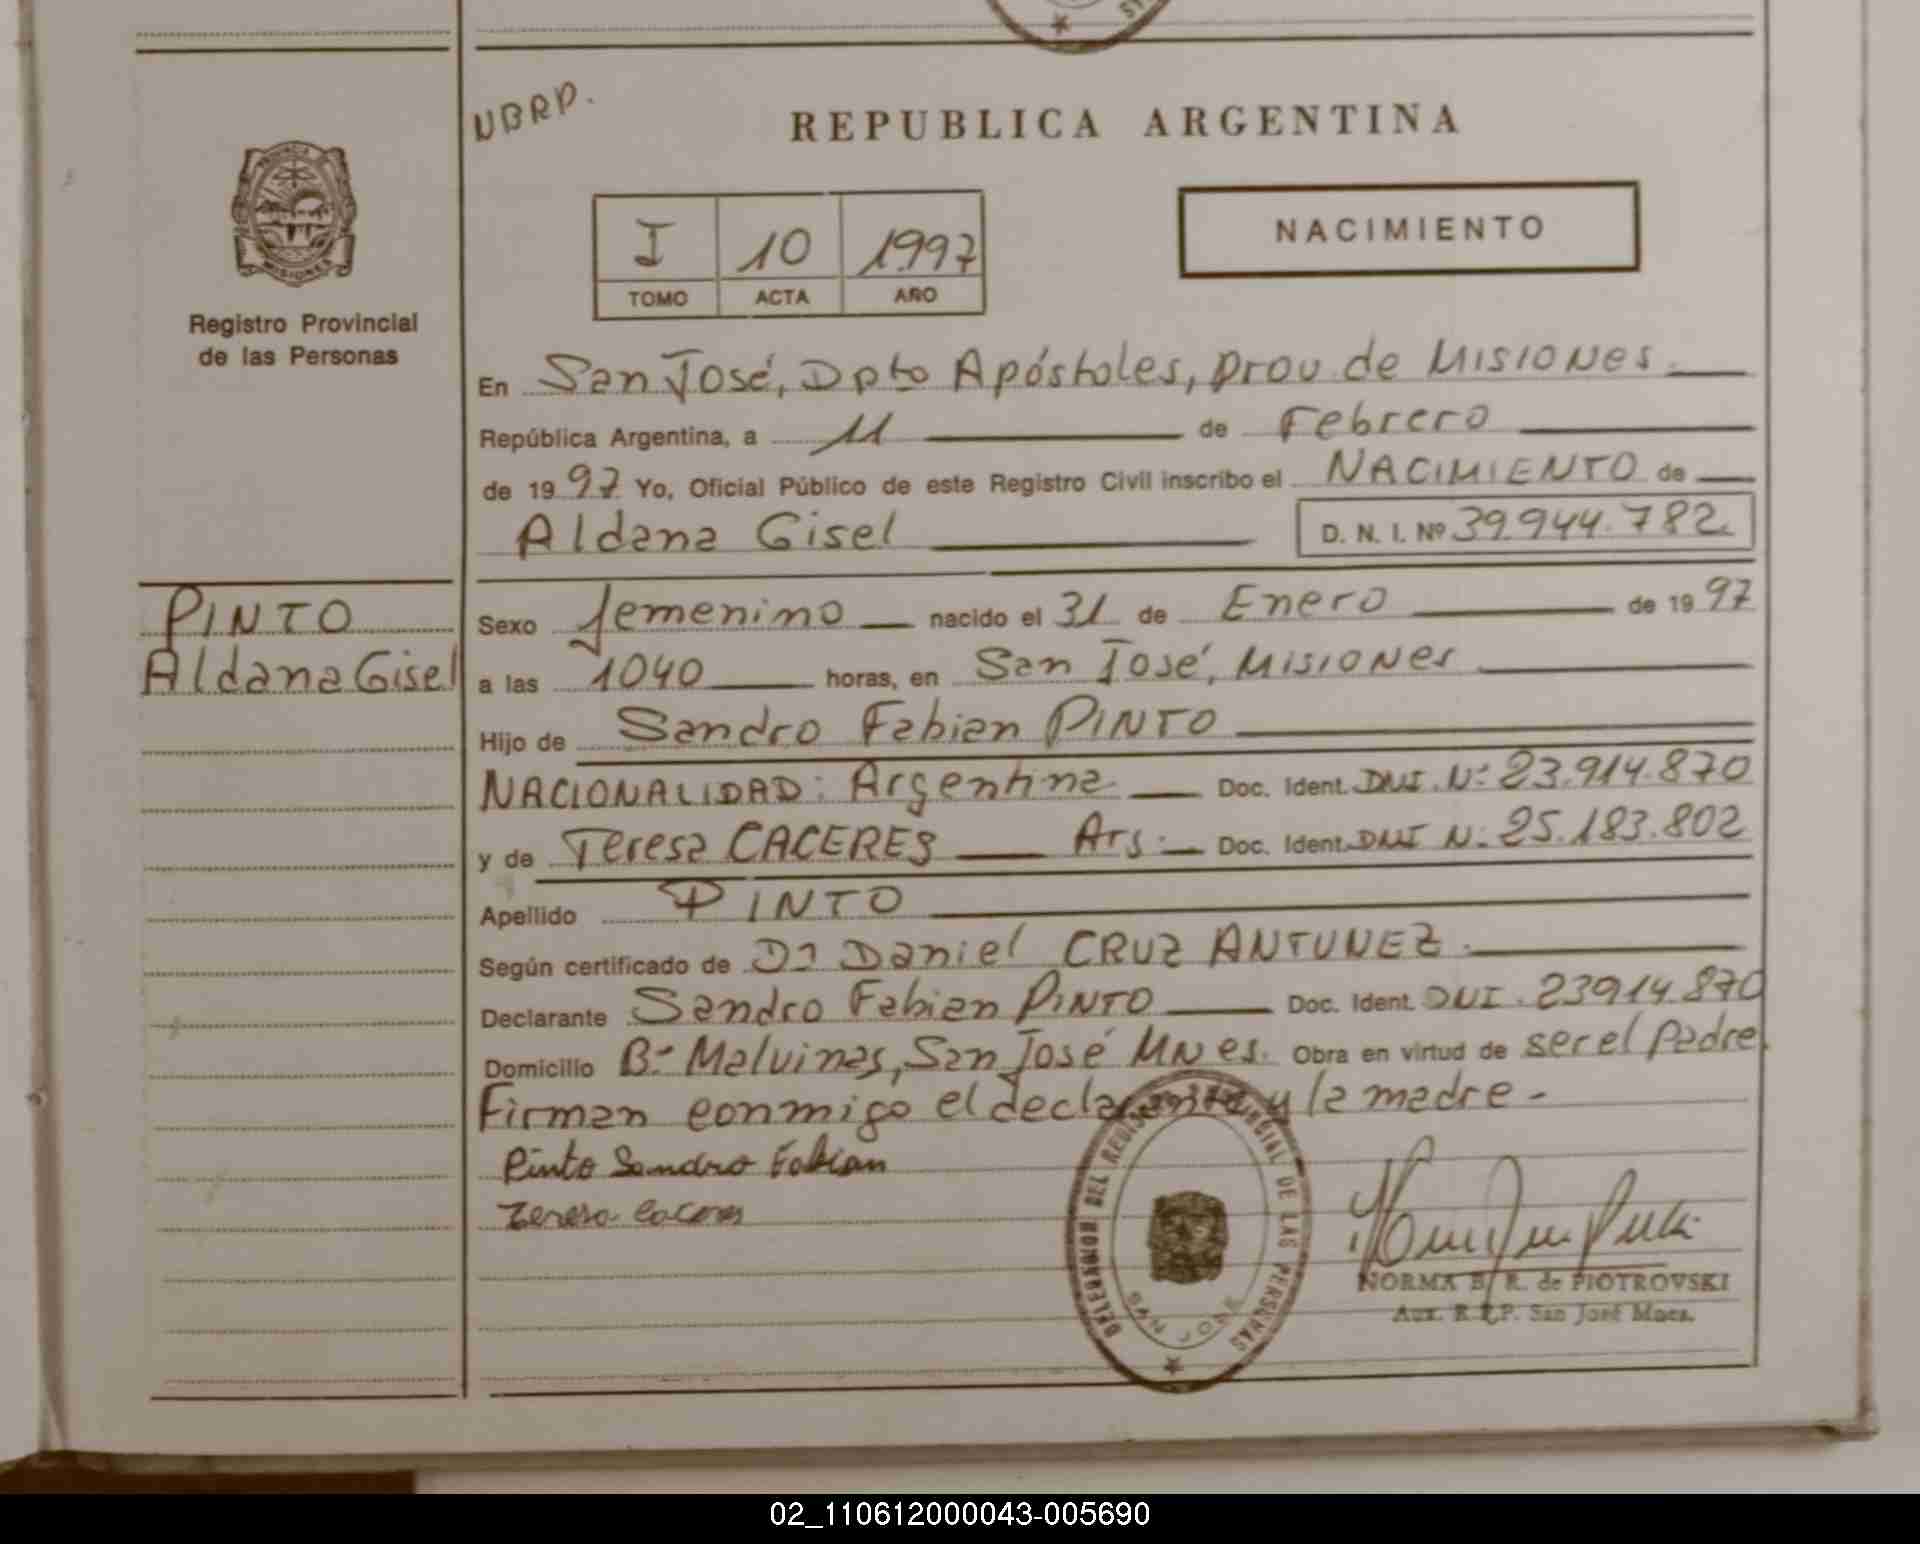 UBRP.
REPUBLICA ARGENTINA
PROVINCIA DE
MISIONES
Registro Provincial
de las Personas
I 10 1997
TOMO ACTA AÑO
NACIMIENTO
En San José, Dpto Apóstoles, Prov. de MISIONES
República Argentina, a 11 de Febrero
de 1997 Yo, Oficial Público de este Registro Civil inscribo el NACIMIENTO de
Aldana Gisel D. N. I. Nº 39.944.782
PINTO
Aldana Gisel
Sexo femenino nacido el 31 de Enero de 1997
a las 1040 horas, en San José, MISIONES
Hijo de Sandro Fabian PINTO
NACIONALIDAD: Argentina Doc. Ident. DNI. Nº 23.914.870
y de Teresa CACERES Arg. Doc. Ident. DNI N: 25.183.802
Apellido PINTO
Según certificado de Dr Daniel CRUZ ANTUNEZ.
Declarante Sandro Fabian PINTO Doc. Ident. DNI. 23914.870
Domicilio Bº Malvinas, San José Mnes. Obra en virtud de ser el padre.
Firman conmigo el declarante y la madre -
Pinto Sandro Fabian
Teresa Caceres
DELEGACION DEL REGISTRO PROVINCIAL DE LAS PERSONAS
SAN JOSE
NORMA B. R. de PIOTROVSKI
Aux. R.P.P. San José Mnes.
02_110612000043-005690